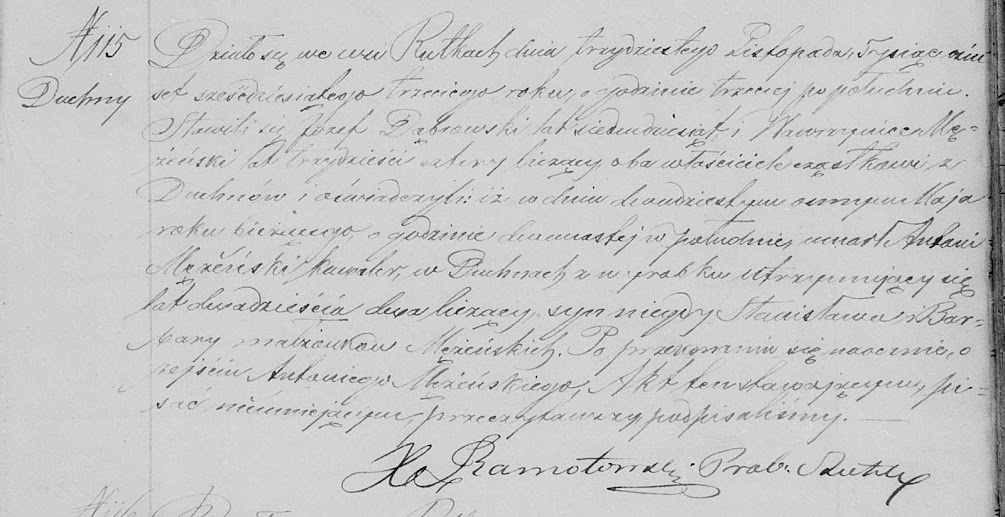 N 115
Duchny
Działo się we wsi Rutkach dnia trzydziestego Listopada, tysiąc ośm-
set sześćdziesiątego trzeciego roku, o godzinie trzeciej po południu.
Stawili się Józef Dąbrowski lat siedmdziesiąt, i Wawrzyniec Mę-
żeński lat trzydzieści cztery liczący, oba właściciele cząstkowi z
Duchnów i oświadczyli: iż w dniu dwudziestym osmym Maja
roku bieżącego, o godzinie dwunastej w południe, umarł Antoni
Mężeński kawaler, w Duchnach z w robku utrzymujący się
lat dwadzieścia dwa liczący, syn niegdy Stanisława i Bar-
bary małżonków Mężeńskich. Po przekonaniu się naocznie, o
zejściu Antoniego Mężeńskiego, Akt ten stawającym, pi-
sać nieumiejącym, przeczytawszy podpisaliśmy.
X Ramotowski Prob: